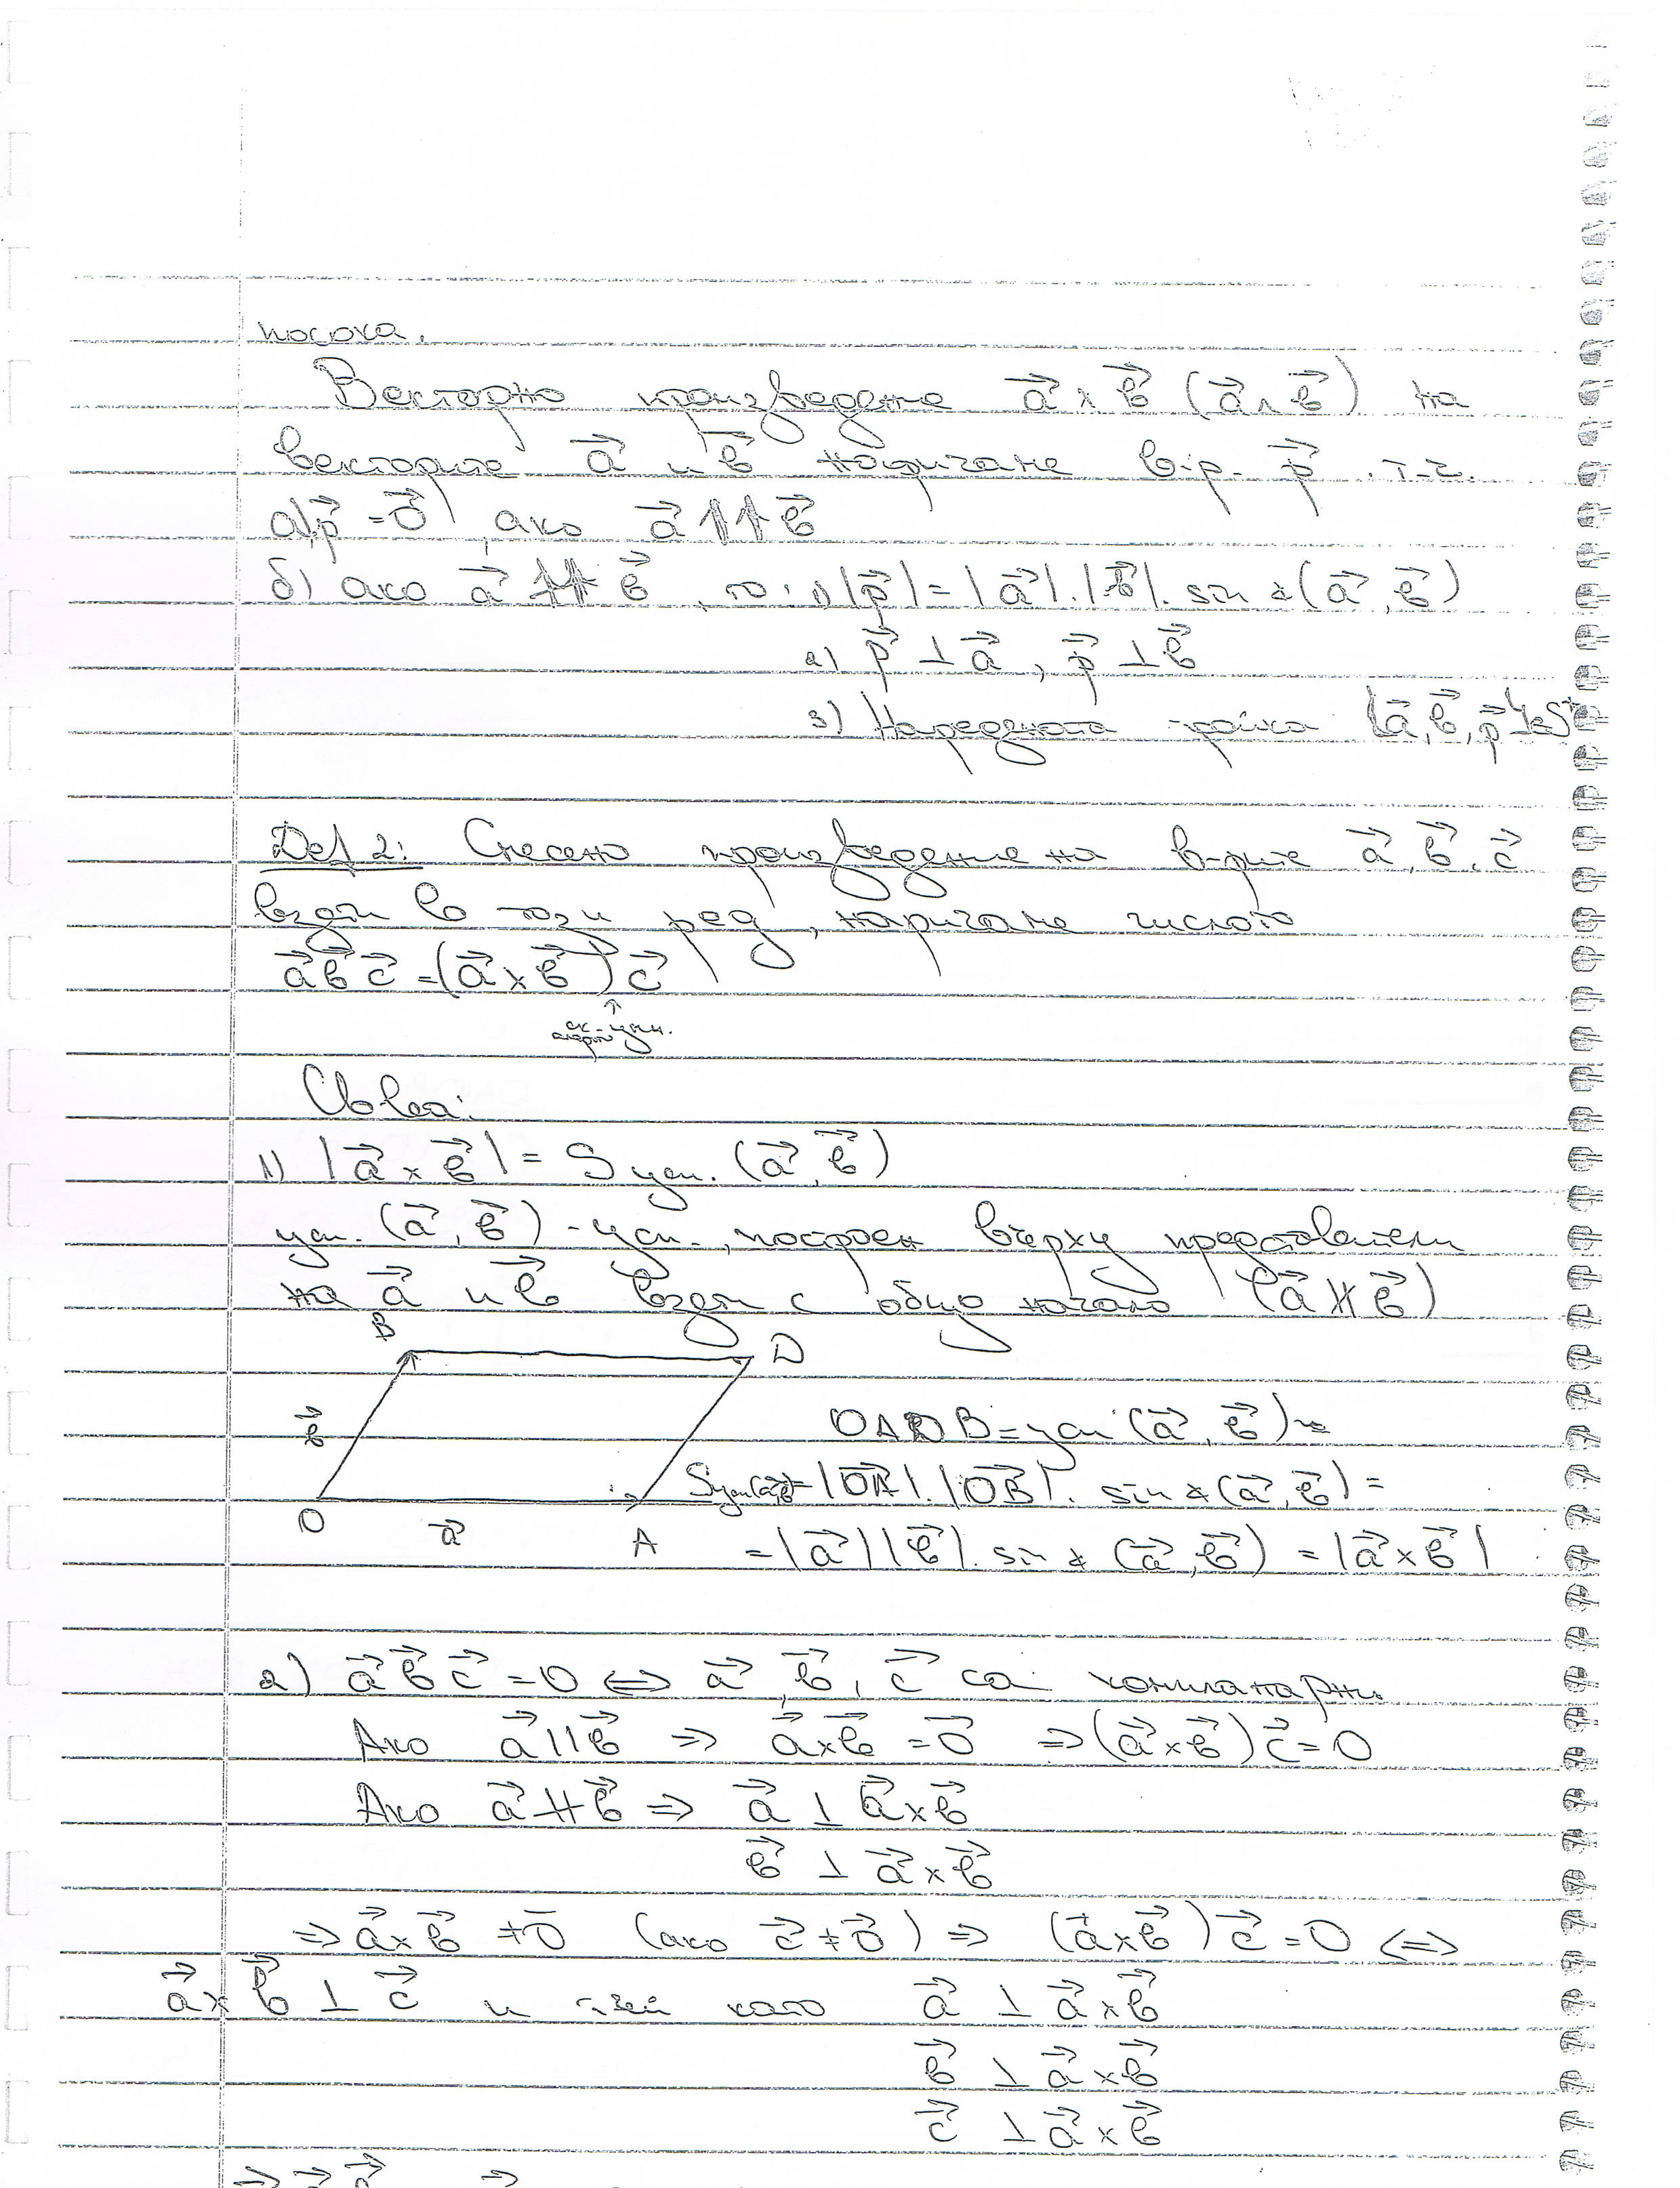 посока.
Векторно произведение a⃗ × b⃗ (a⃗ ∧ b⃗) на
векторите a⃗ и b⃗ наричаме в-р p⃗ т.ч.
а) p⃗ = o⃗, ако a⃗ ⇈ b⃗
б) ако a⃗ ∦ b⃗, то: 1) |p⃗| = |a⃗|.|b⃗|. sin ∢(a⃗, b⃗)
2) p⃗ ⊥ a⃗, p⃗ ⊥ b⃗
3) Наредената тройка {a⃗, b⃗, p⃗} ∈ S⁺
Def 2: Смесено произведение на в-рите a⃗, b⃗, c⃗
взети в този ред, наричаме числото
a⃗ b⃗ c⃗ = (a⃗ × b⃗) c⃗
↑
Св-ва:
1) |a⃗ × b⃗| = S усп. (a⃗, b⃗)
усп. (a⃗, b⃗) - усп., построен върху представители
на a⃗ и b⃗ взети с общо начало (a⃗ ∦ b⃗)
B
D
b⃗
OADB = усп (a⃗, b⃗) =
S усп(a⃗,b⃗) = |OA⃗|.|OB⃗|. sin ∢(a⃗, b⃗) =
O a⃗ A
= |a⃗||b⃗|. sin ∢ (a⃗, b⃗) = |a⃗ × b⃗|
2) a⃗ b⃗ c⃗ = 0 ⇔ a⃗, b⃗, c⃗ са компланарни
Ако a⃗ || b⃗ ⇒ a⃗ × b⃗ = o⃗ ⇒ (a⃗ × b⃗) c⃗ = 0
Ако a⃗ ∦ b⃗ ⇒ a⃗ ⊥ a⃗ × b⃗
b⃗ ⊥ a⃗ × b⃗
⇒ a⃗ × b⃗ ≠ o⃗ (ако c⃗ ≠ o⃗) ⇒ (a⃗ × b⃗) c⃗ = 0 ⇔
a⃗ × b⃗ ⊥ c⃗ и тъй като a⃗ ⊥ a⃗ × b⃗
b⃗ ⊥ a⃗ × b⃗
c⃗ ⊥ a⃗ × b⃗